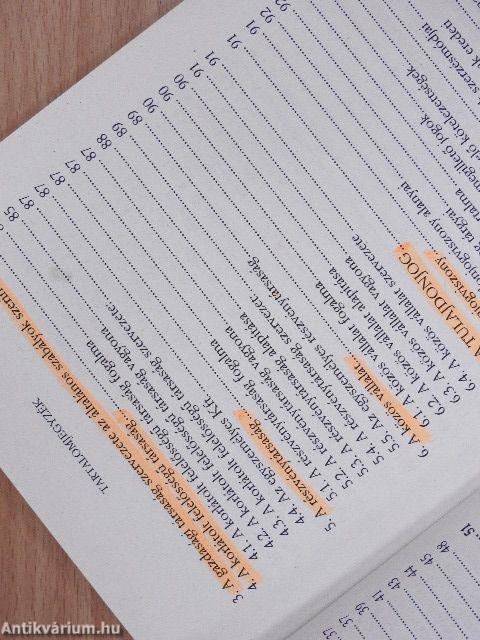 TARTALOMJEGYZÉK
3. A gazdasági társaság szervezete az általános szabályok szerint
4. A korlátolt felelősségű társaság
4.1. A korlátolt felelősségű társaság fogalma
4.2. A korlátolt felelősségű társaság vagyona
4.3. A korlátolt felelősségű társaság szervezete
4.4. Az egyszemélyes Kft.
5. A részvénytársaság
5.1. A részvénytársaság fogalma
5.2. A részvénytársaság vagyona
5.3. A részvénytársaság alapítása
5.4. A részvénytársaság szervezete
5.5. Az egyszemélyes részvénytársaság
6. A közös vállalat
6.1. A közös vállalat fogalma
6.2. A közös vállalat alapítása
6.3. A közös vállalat vagyona
6.4. A közös vállalat szervezete
A TULAJDONJOG
85
87
87
87
88
89
89
90
90
90
91
91
91
92
92
37
37
39
41
43
44
45
48
51
Antikvárium.hu